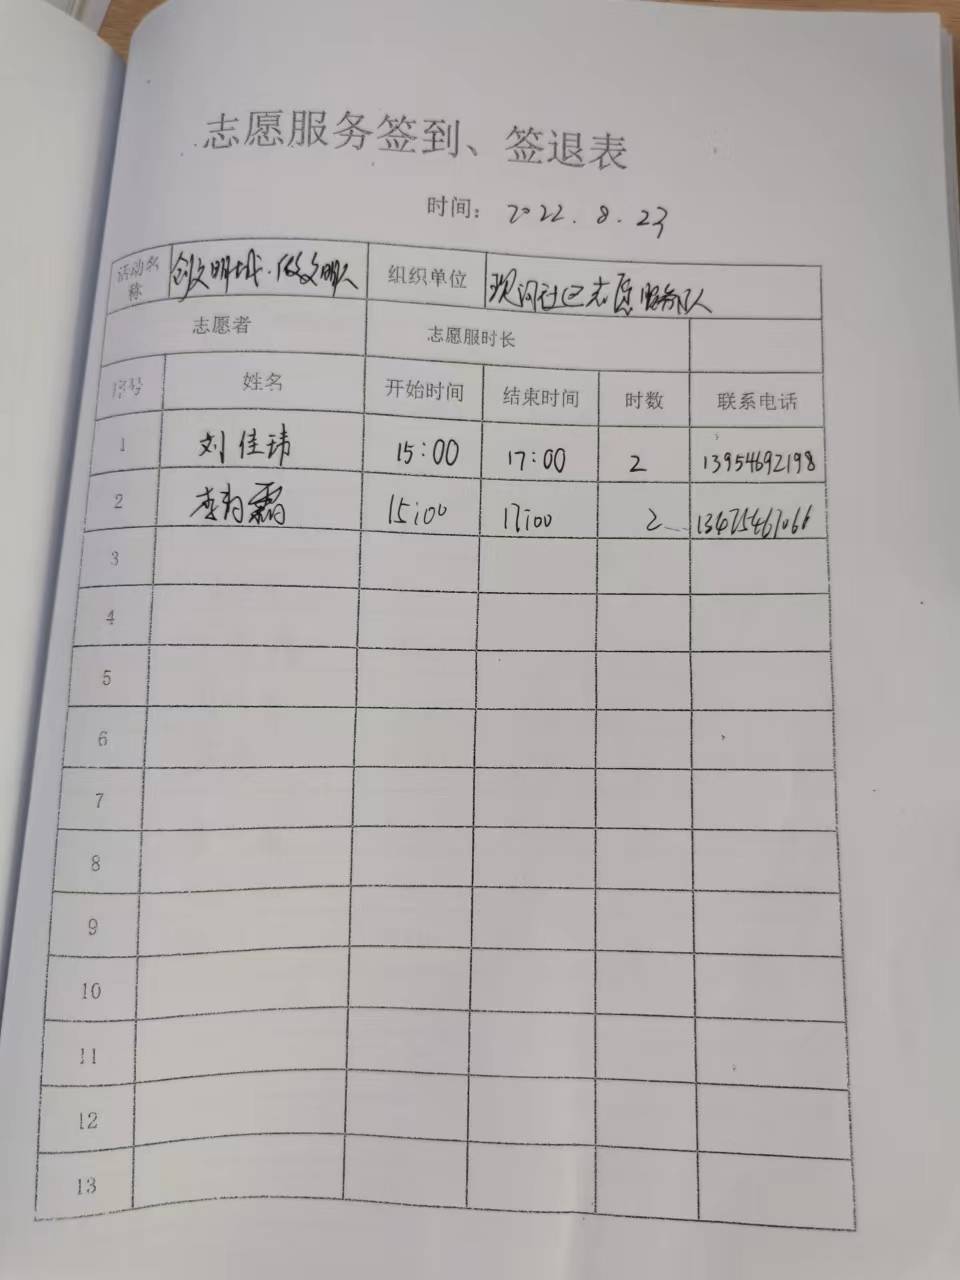 志愿服务签到、签退表
时间: 2022.8.23
活动名称 创文明城·做文明人 组织单位 社区志愿服务队
志愿者 志愿服时长
序号 姓名 开始时间 结束时间 时数 联系电话
1 刘佳玮 15:00 17:00 2 13954692198
2 李 霜 15:00 17:00 2 13475467066
3
4
5
6
7
8
9
10
11
12
13